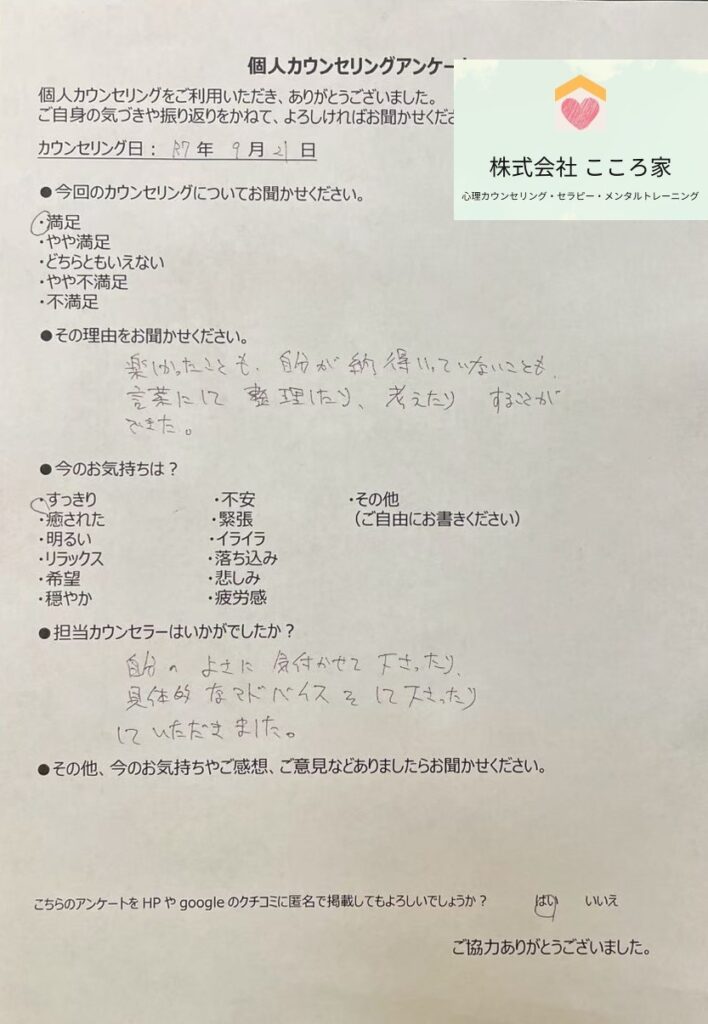 個人カウンセリングアンケート
個人カウンセリングをご利用いただき、ありがとうございました。
ご自身の気づきや振り返りをかねて、よろしければお聞かせくださ
株式会社 こころ家
心理カウンセリング・セラピー・メンタルトレーニング
カウンセリング日： R7 年 9 月 21 日
●今回のカウンセリングについてお聞かせください。
・満足
・やや満足
・どちらともいえない
・やや不満足
・不満足
●その理由をお聞かせください。
楽しかったことも、自分が納得いっていないことも、
言葉にして整理したり、考えたり することが
できた。
●今のお気持ちは？
・すっきり ・不安 ・その他
・癒された ・緊張 （ご自由にお書きください）
・明るい ・イライラ
・リラックス ・落ち込み
・希望 ・悲しみ
・穏やか ・疲労感
●担当カウンセラーはいかがでしたか？
自分のよさに気付かせて下さったり、
具体的なアドバイスをして下さったり
していただきました。
●その他、今のお気持ちやご感想、ご意見などありましたらお聞かせください。
こちらのアンケートをHPやgoogleのクチコミに匿名で掲載してもよろしいでしょうか？ はい いいえ
ご協力ありがとうございました。